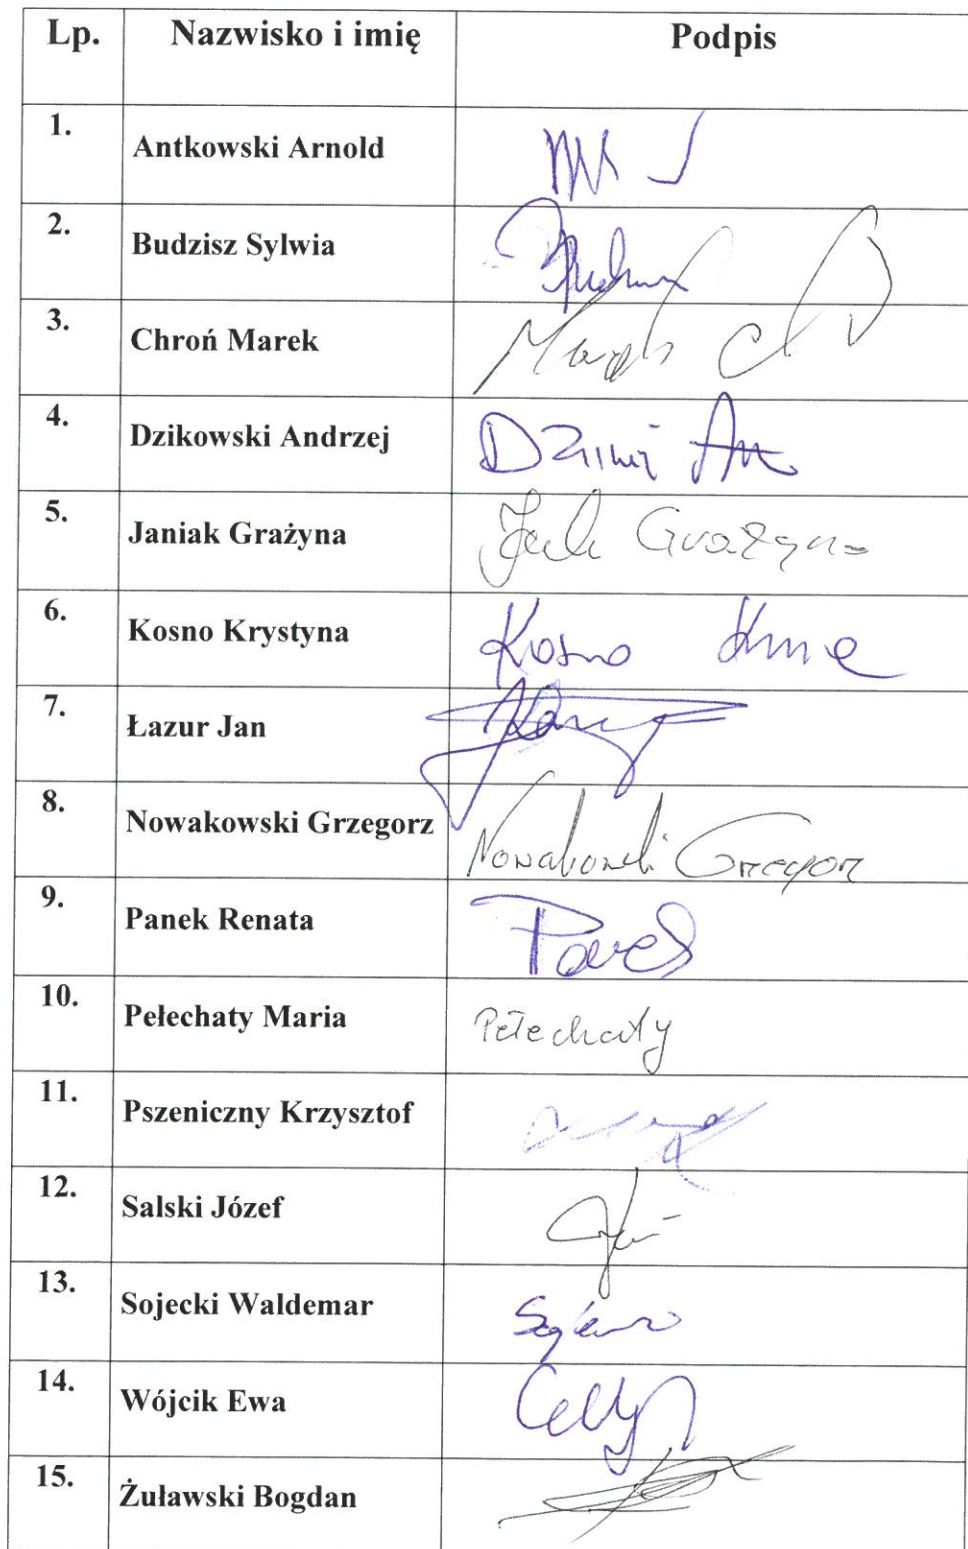 Lp. Nazwisko i imię Podpis
1. Antkowski Arnold
2. Budzisz Sylwia
3. Chroń Marek Marek
4. Dzikowski Andrzej
5. Janiak Grażyna Grażyna
6. Kosno Krystyna Kosno
7. Łazur Jan
8. Nowakowski Grzegorz Nowakowski Grzegorz
9. Panek Renata
10. Pełechaty Maria Pełechaty
11. Pszeniczny Krzysztof
12. Salski Józef
13. Sojecki Waldemar
14. Wójcik Ewa
15. Żuławski Bogdan